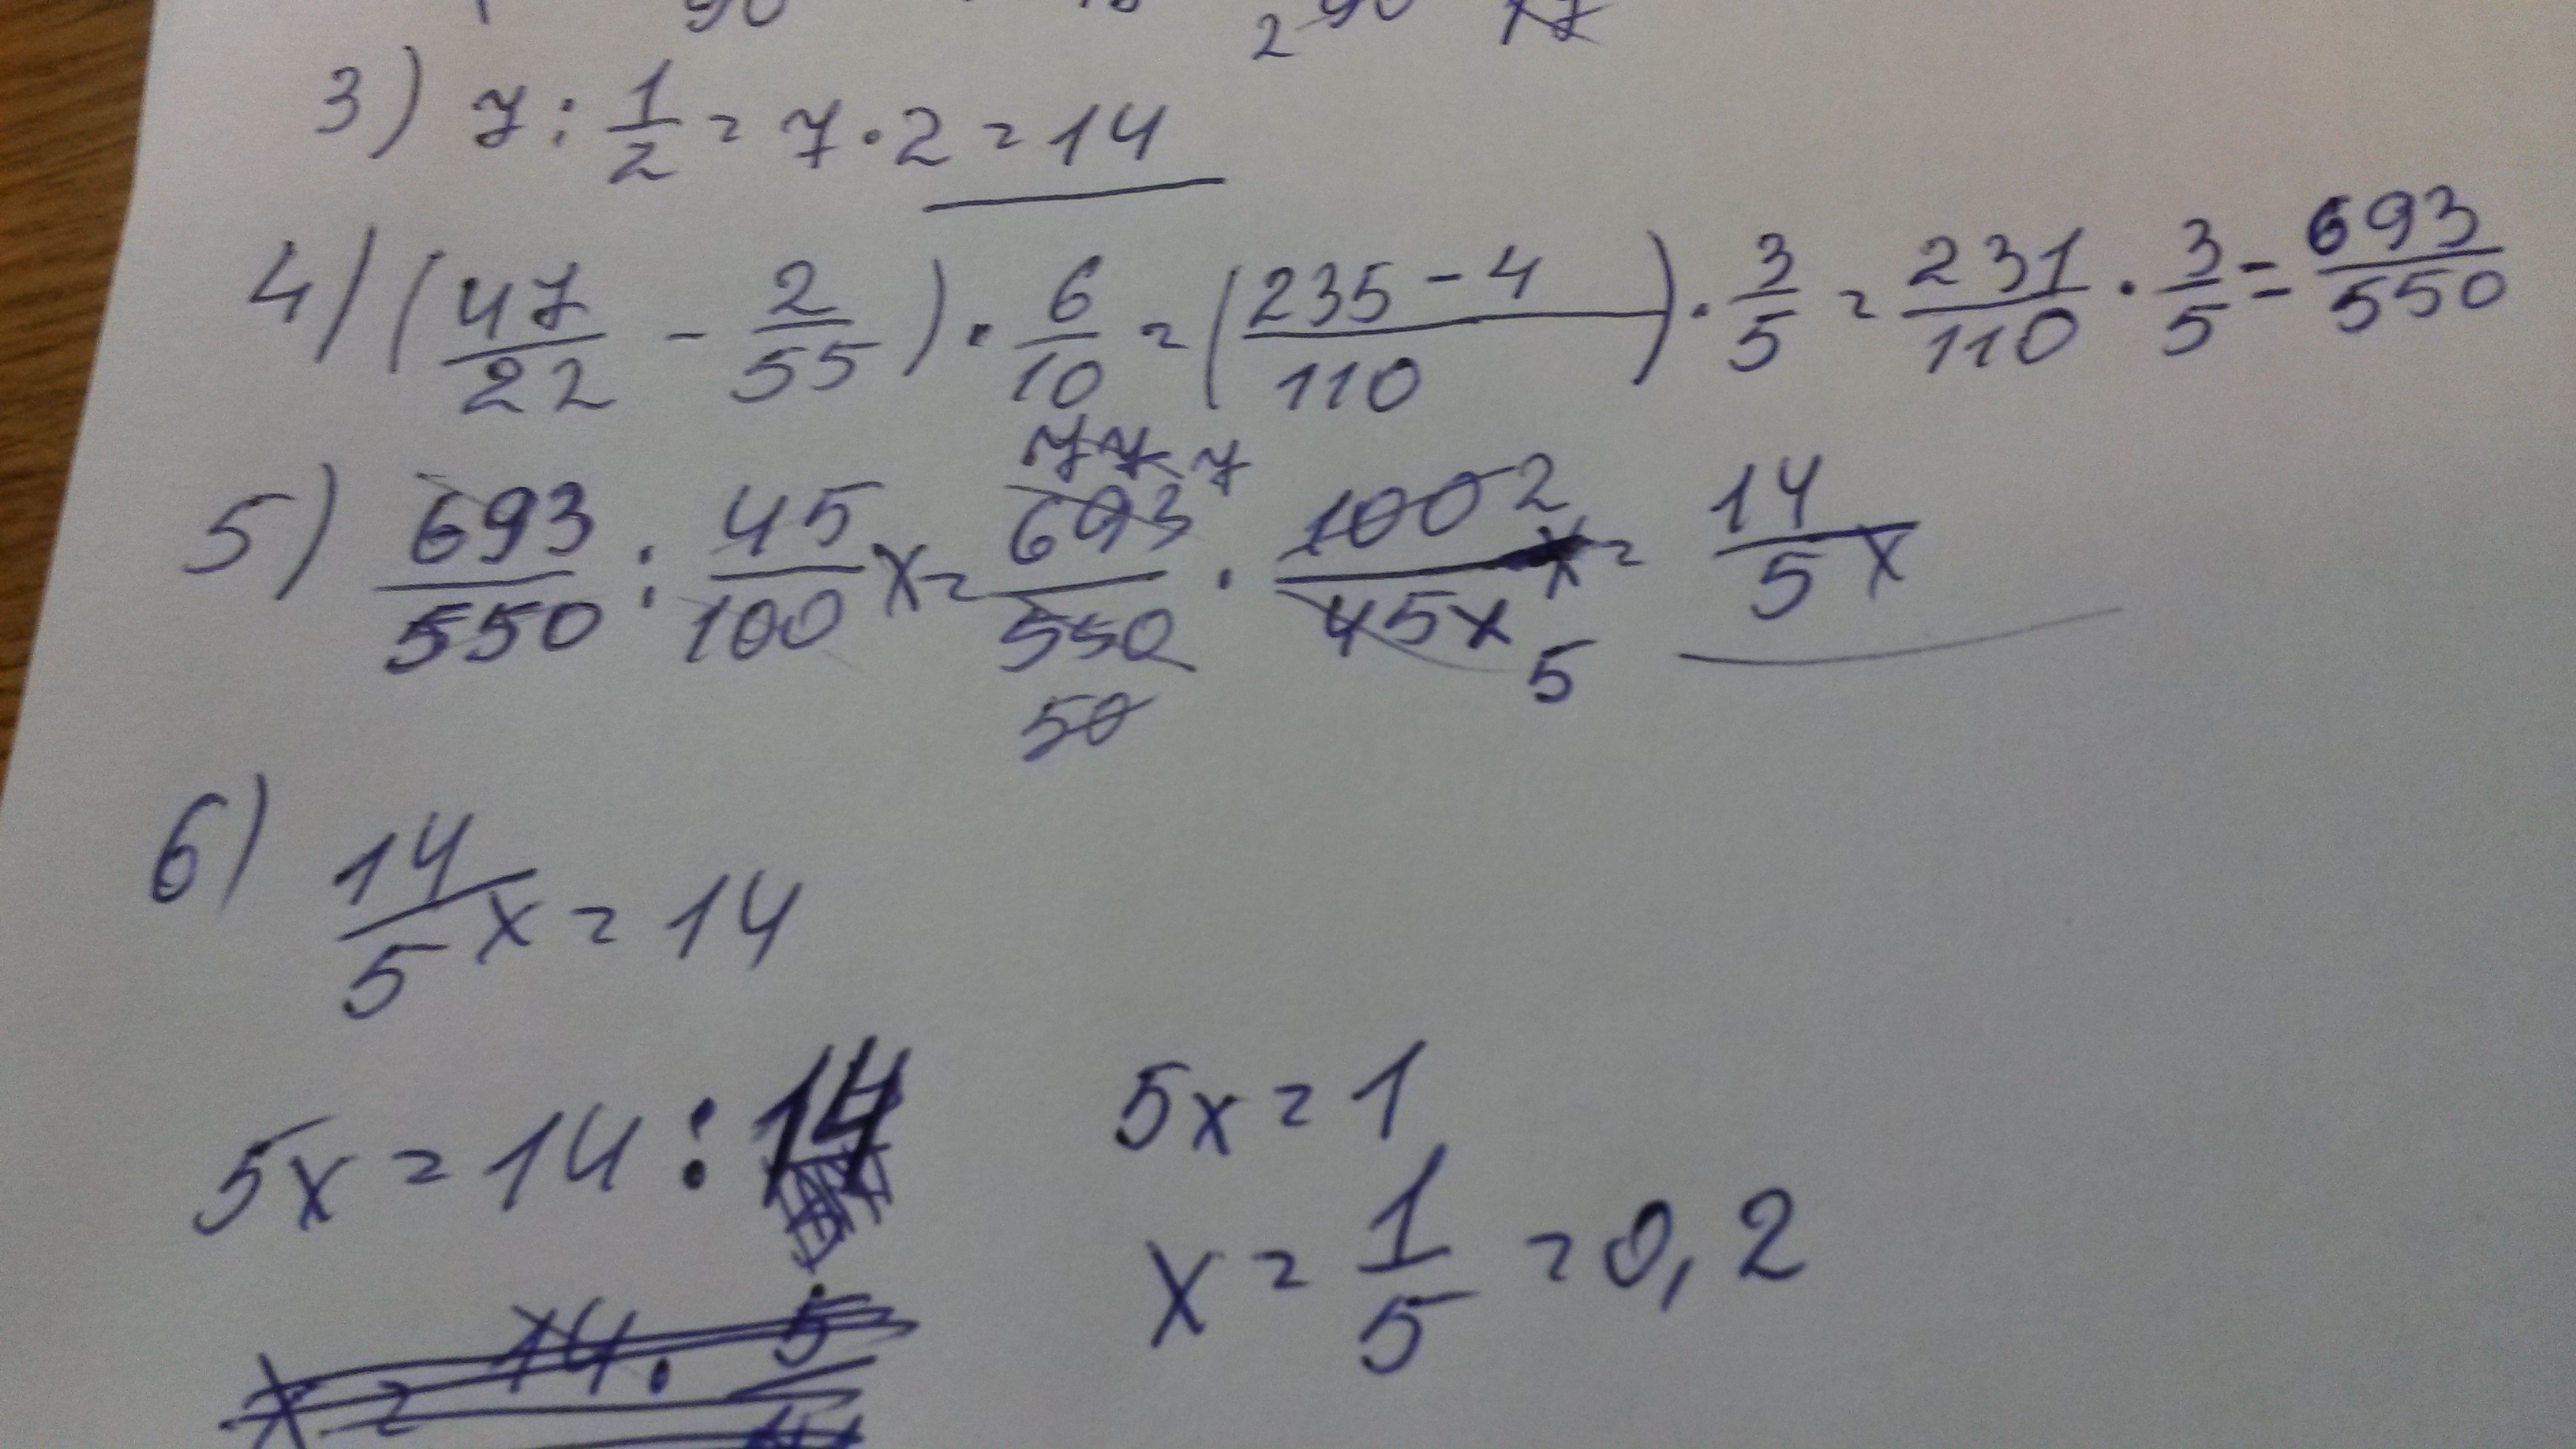 90 2 90
3) 7 : 1/2 = 7 · 2 = 14
4) (47/22 - 2/55) · 6/10 = (235 - 4/110) · 3/5 = 231/110 · 3/5 = 693/550
77 7 2
5) 693/550 : 45/100 x = 693/550 · 100/45x = 14/5x
50 5
6) 14/5x = 14
5x = 14 : 14
5x = 1
x = 14 · 5
x = 1/5 = 0,2